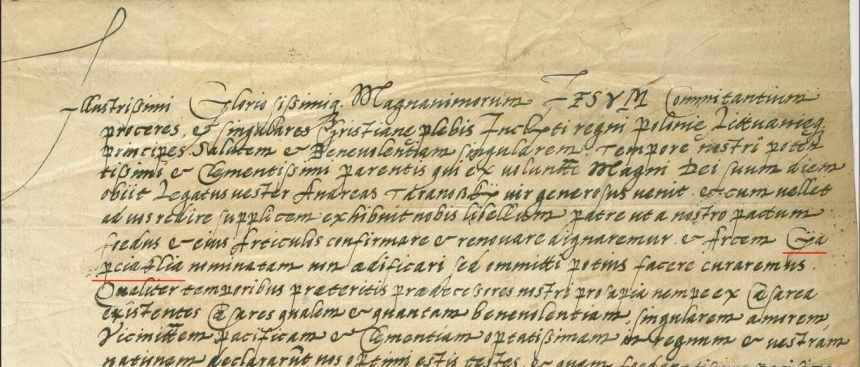 Illustrissimi Gloriosissimiq. Magnanimorum IESVM Commitantium
proceres, & singulares Christiane plebis Inclyti regni Polonie, Littuanieq.
principes Salutem & Benevolentiam singularem Tempore nostri poten
tissimi & Clementissimi parentis qui ex volunte Magni Dei suum diem
obiit Legatus vester Andreas vir generosus venit. et cum vellet
ad vos redire supplicem exhibuit nobis libellum patre ut a nostro pactum
foedus & eius Articulos confirmare et renouare dignaremur. & Arcem
nominatam non ædificari sed ommitti potius facere curaremus.
Qualiter temporibus præteritis prædecessores nostri prosapia nempe ex Cæsarea
existentes Cæsares qualem & quantam benevolentiam, singularem amorem,
Vicinittem pacificam & Clementiam optatissimam in regnum & vestram
nationem declararunt vos optimi estis testes, & quem